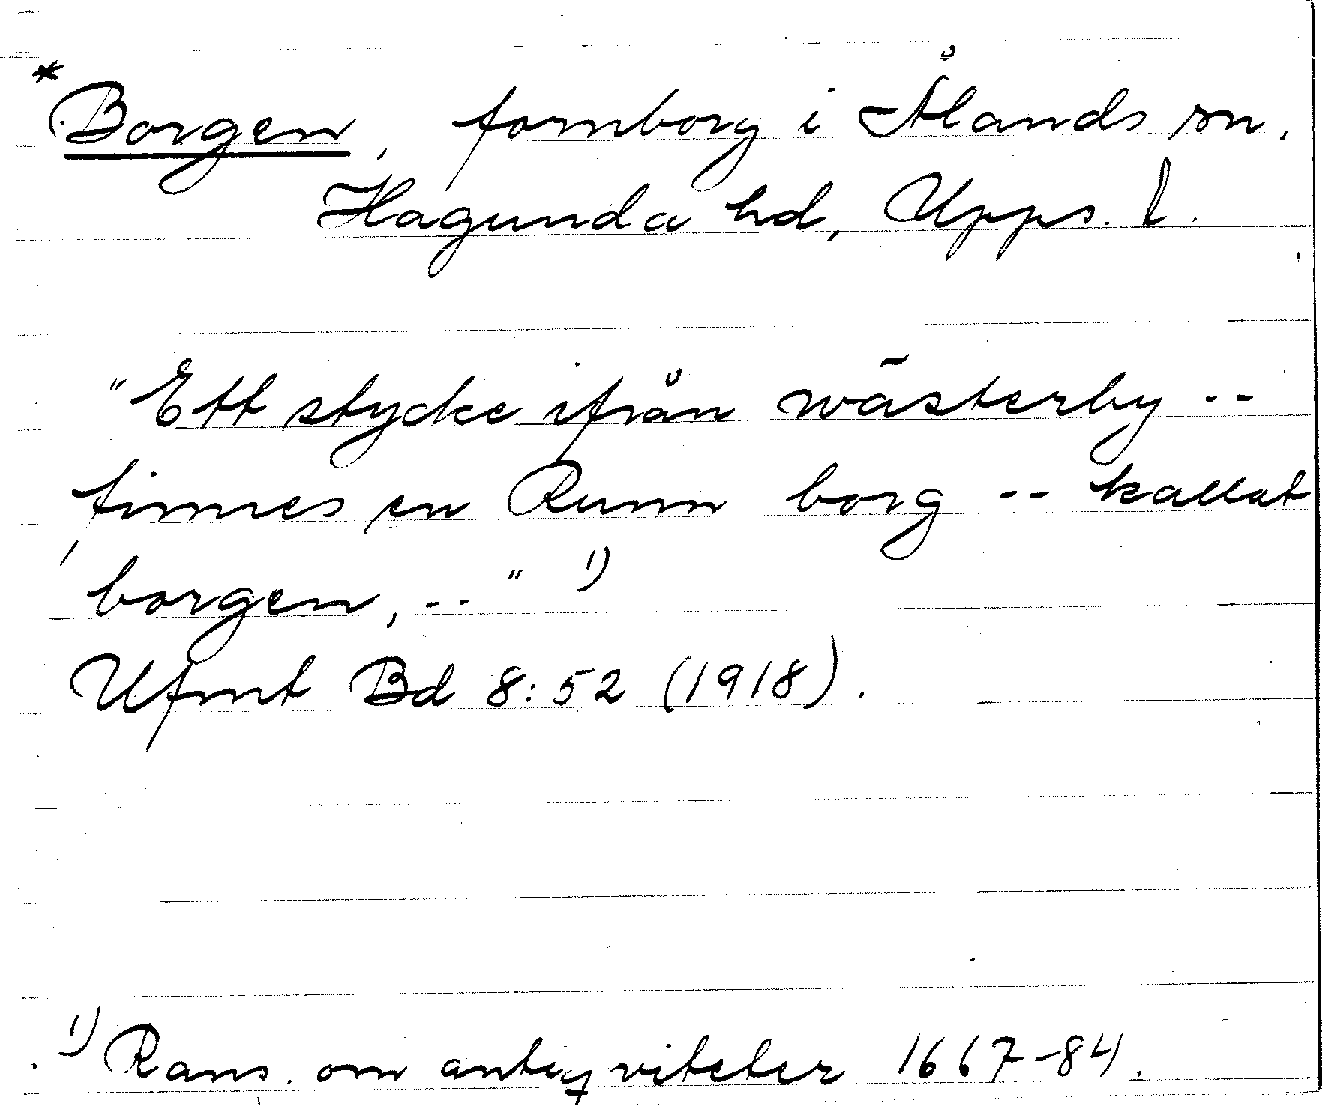 *Borgen, fornborg i Ålands sn.
Hagunda hd, Upps. l.
"Ett stycke ifrån wästerby --
finnes en Runn borg -- kallat
borgen, --" 1)
Ufmt Bd 8:52 (1918).
1) Rans. om antiqviteter 1667-84.